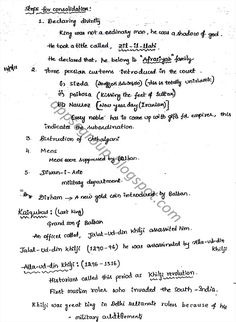 Steps for consolidation:
1. Declaring divinity
King was not a ordinary man, he was a shadow of god.
He took a title called, Zil-i-Ilahi
He declared that, he belong to "Afrasiyab" family.
2. Three persian customs introduced in the court
i) Sizda
ii) Peibosa (kissing the feet of Sultan)
iii) Nauroz (New year day (Iranian)
Every noble has to come up with gifts for expires, this
indicate the subordination.
3. Distruction of Chihalgani
4. Meos
Meos were suppressed by Balban.
5. Diwan-i-Ariz
military department
Dirham → A new gold coin introduced by Balban.
Kaiqubad: (last king)
Grand son of Balban
An officer called, Jalal-ud-din khilji assasinated him.
Jalal-ud-din khilji (1290-96) he was assassinated by Alla-ud-din
khilji
Alla-ud-din khilji: (1296-1316)
Historians called this period as Khilji revolution.
First muslim ruler who invaded the South-India.
Khilji was great king in Delhi sultanate rulers because of his
- military
upscsyllabus.in